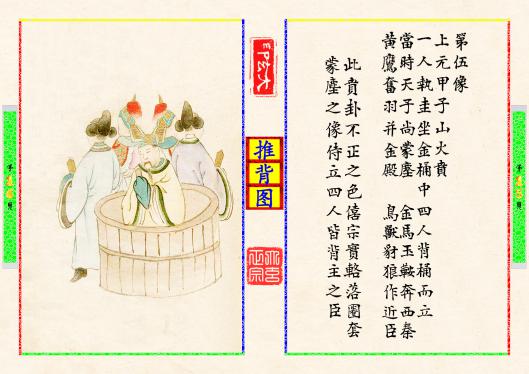 第伍像
上元甲子山火賁
一人執圭坐金桶中四人背桶而立
當時天子尚蒙塵 金馬玉鞍奔西秦
黃鷹奮羽并金殿 鳥獸豺狼作近臣
此賁卦不正之色僖宗實輅落圈套
蒙塵之像侍立四人皆背主之臣
推背图